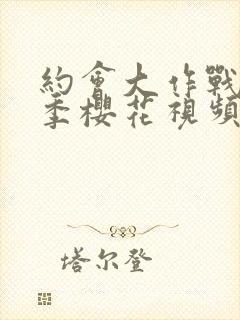 約會大作戰
季櫻花視頻
塔尔登